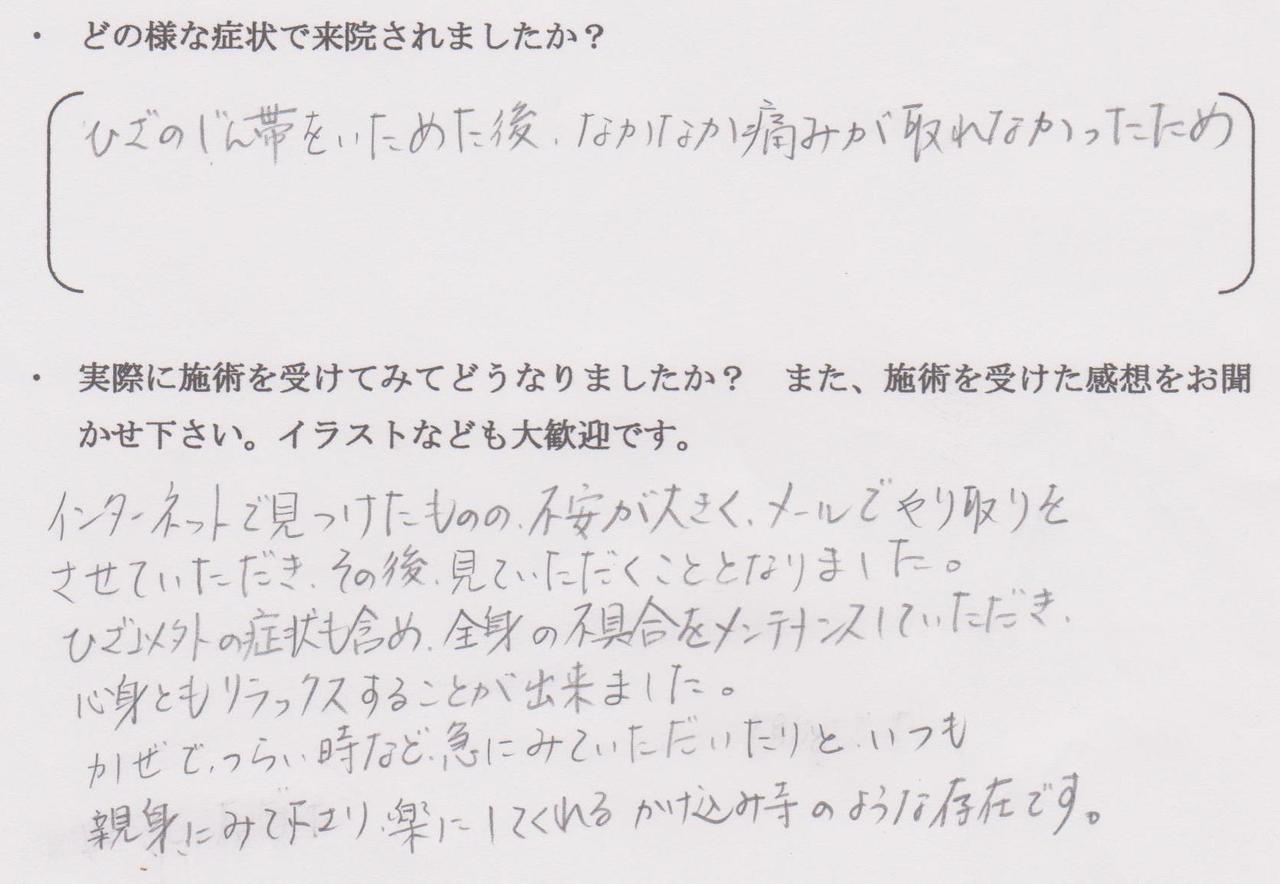 ・ どの様な症状で来院されましたか？
ひざのじん帯をいためた後、なかなか痛みが取れなかったため
・ 実際に施術を受けてみてどうなりましたか？　また、施術を受けた感想をお聞
かせ下さい。イラストなども大歓迎です。
インターネットで見つけたものの、不安が大きく、メールでやり取りを
させていただき、その後、見ていただくこととなりました。
ひざ以外の症状も含め、全身の不具合をメンテナンスしていただき、
心身ともリラックスすることが出来ました。
かぜで、つらい時など、急にみていただいたりと、いつも
親身にみて下さり、楽にしてくれる かけ込み寺のような存在です。